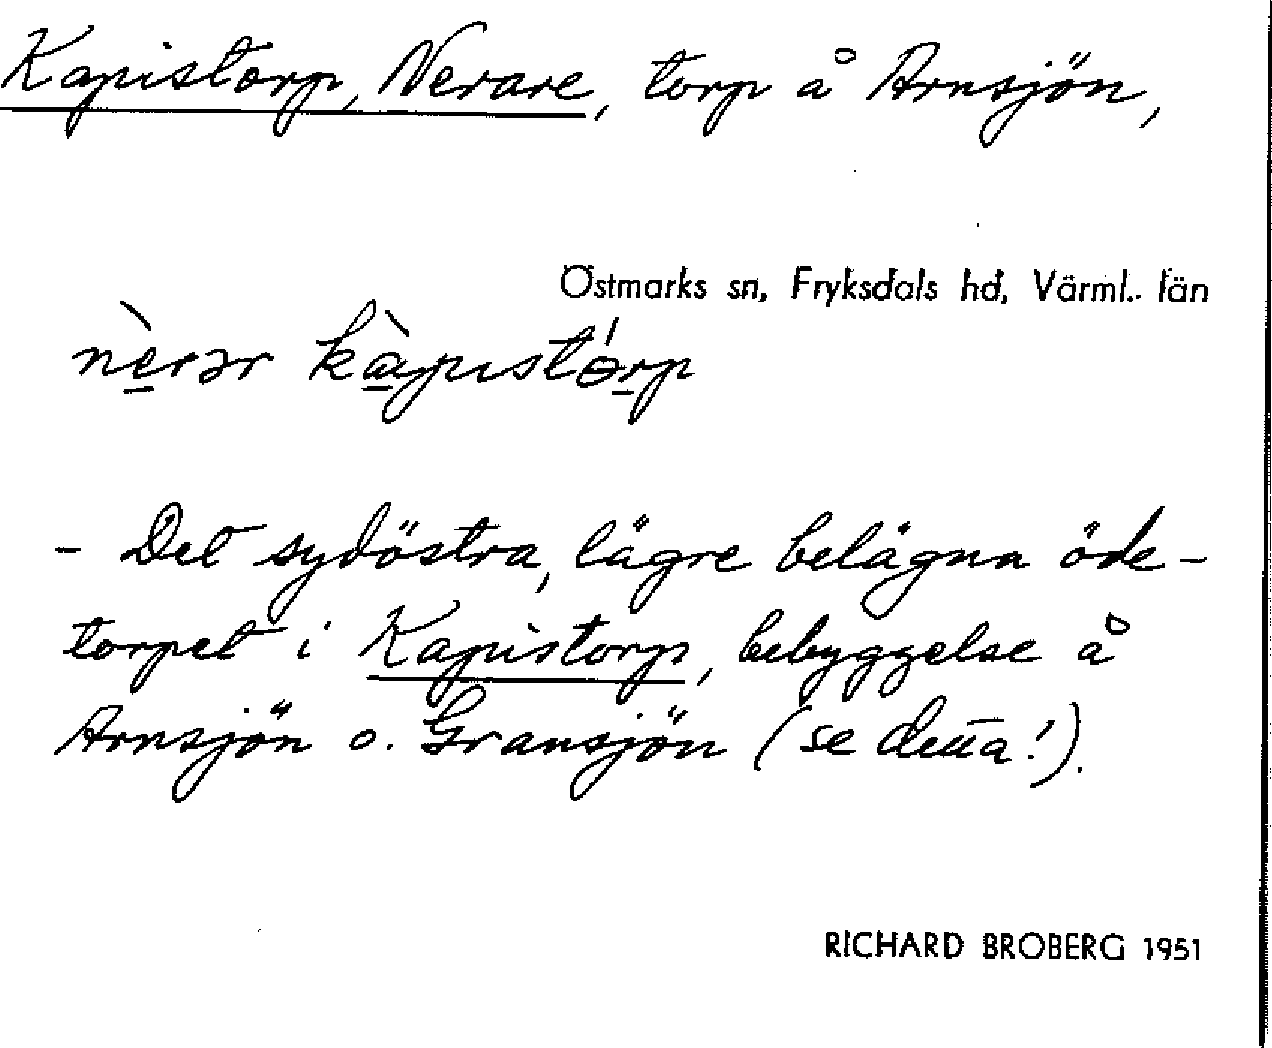 Kapistorp, Nerare, torp å Arnsjön,
Östmarks sn, Fryksdals hd, Värml. län
nè̱rər kà̱pıstɵ́ṟp
- Det sydöstra, lägre belägna öde-
torpet i Kapistorp, bebyggelse å
Arnsjön o. Gransjön (se detta!).
RICHARD BROBERG 1951